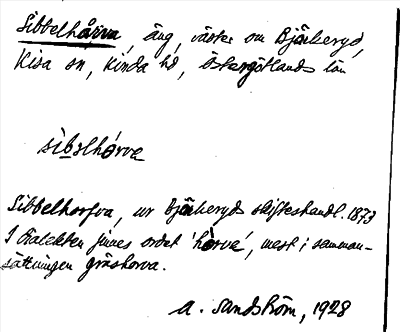 Sibbelhårva, äng, väster om Bjärkeryd,
Kisa sn, Kinda hd, Östergötlands län
sìbəlhórva
Sibbelhorfva, ur Bjärkeryds skifteshandl. 1873
I dialekten finnes ordet 'hòrva', mest i samman-
sättningen gräshorva.
A. Sandström, 1928